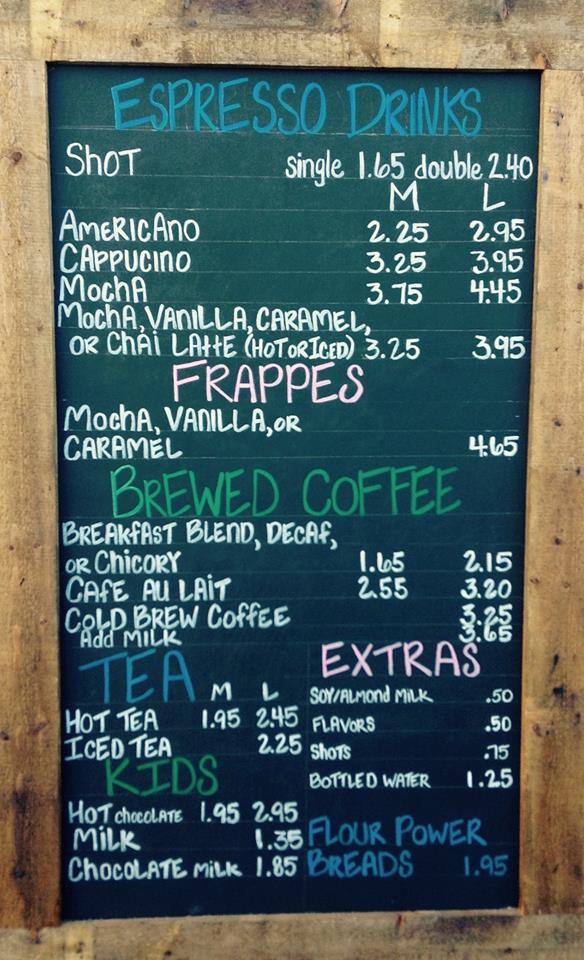 ESPRESSO DRINKS
SHOT single 1.65 double 2.40
M L
AMERICANO 2.25 2.95
CAPPUCINO 3.25 3.95
MOCHA 3.75 4.45
MOCHA, VANILLA, CARAMEL,
OR CHAI LATTE (HOT OR ICED) 3.25 3.95
FRAPPES
MOCHA, VANILLA, OR
CARAMEL 4.65
BREWED COFFEE
BREAKFAST BLEND, DECAF,
OR CHICORY 1.65 2.15
CAFE AU LAIT 2.55 3.20
COLD BREW COFFEE 3.25
Add MILK 3.65
TEA M L
HOT TEA 1.95 2.45
ICED TEA 2.25
KIDS
HOT chocolate 1.95 2.95
MILK 1.35
CHOCOLATE MILK 1.85
EXTRAS
SOY/ALMOND MILK .50
FLAVORS .50
SHOTS .75
BOTTLED WATER 1.25
FLOUR POWER
BREADS 1.95